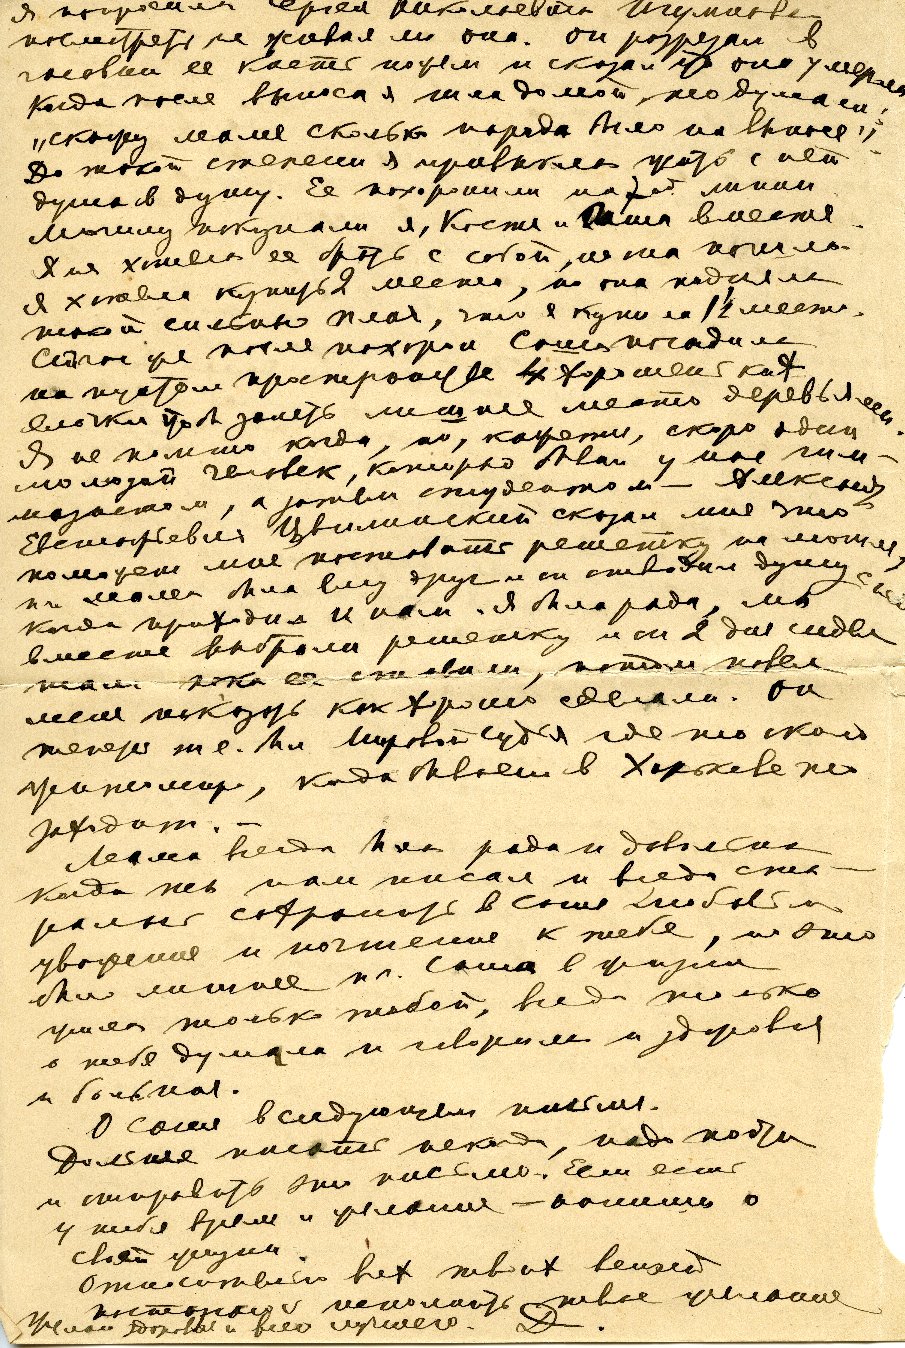 я попросила Сергея Николаевича
посмотреть не живая ли она. Он разрезал в
часовни ее кастю ножем и сказал что она умерла
Когда после выноса я шла домой, то думала:
„скажу маме сколько народа было на выносе"!
До такой степени я привыкла жить с ней
душа в душу. Ее похоронили на 7ой линии
могилу покупали я, Костя и Саша вместе.
Я не хотела ее брать с собой, но она пошла
я хотела купить 2 места, но она подняла
такой сильный плач, что я купила 1½ места.
Сейчас же после похорон Саша посадила
на пустом пространстве 4 хорошеньких
елочки чтоб занять лишнее место деревьями.
Я не помню когда, но, кажется, скоро один
молодой человек, который бывал у нас гим-
назистом, а затем студентом — Александр
Евстафьевич Цвилинский сказал мне что
поможет мне поставить решетку на могилу,
п.ч. мама была ему друг и он отводил душу с ней
когда приходил к нам. Я была рада, мы
вместе выбрали решетку и он 2 дня сидел
там пока ее ставили, потом повел
меня показать как хорошо сделали. Он
теперь же был Мировой Судья где то около
Житомира, когда бывает в Харькове то
заходит. —
Мама всегда была рада и довольна
когда ты нам писал и всегда ста-
ралась сохранить в Саше любовь и
уважение и почтение к тебе, но это
было лишнее п.ч. Саша в жизни
жила только тобой, всегда только
о тебе думала и говорила и здоровая
и больная.
О Саше в следующем письме.
Дольше писать некогда, надо пойти
и отправить это письмо. Если есть
у тебя время и желание — напиши о
своей жизни.
Относительно всех твоих вещей
постараюсь исполнить твое желание
Желаю здоровья и всего лучшего. Д.